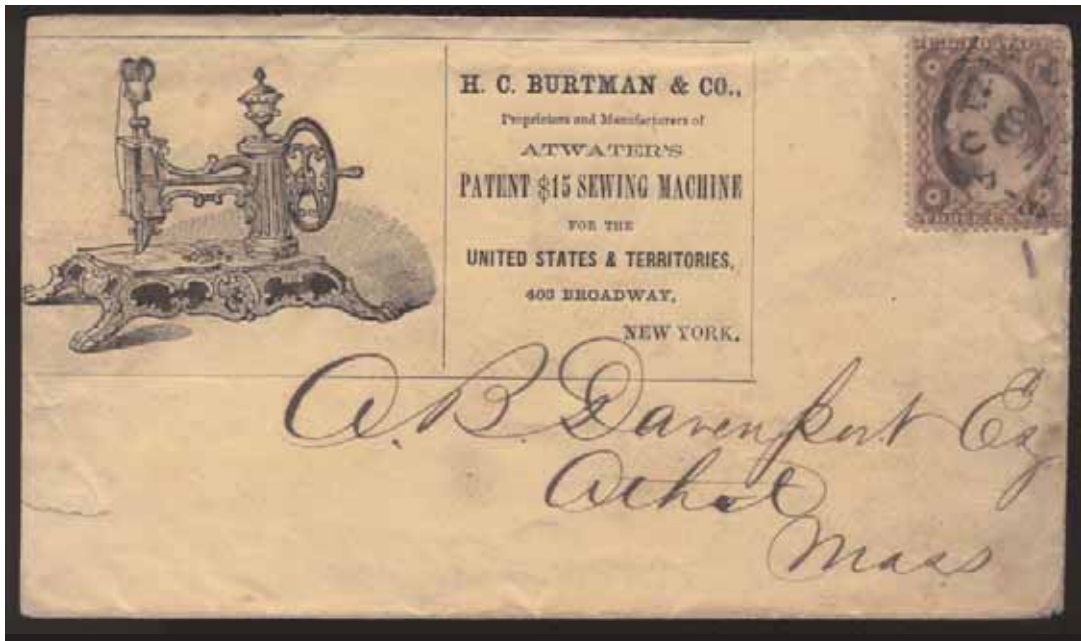 H. C. BURTMAN & CO.,
Proprietors and Manufacturers of
ATWATER'S
PATENT $15 SEWING MACHINE
FOR THE
UNITED STATES & TERRITORIES,
403 BROADWAY,
NEW YORK.
A. B. Davenport Esq
Athol
Mass